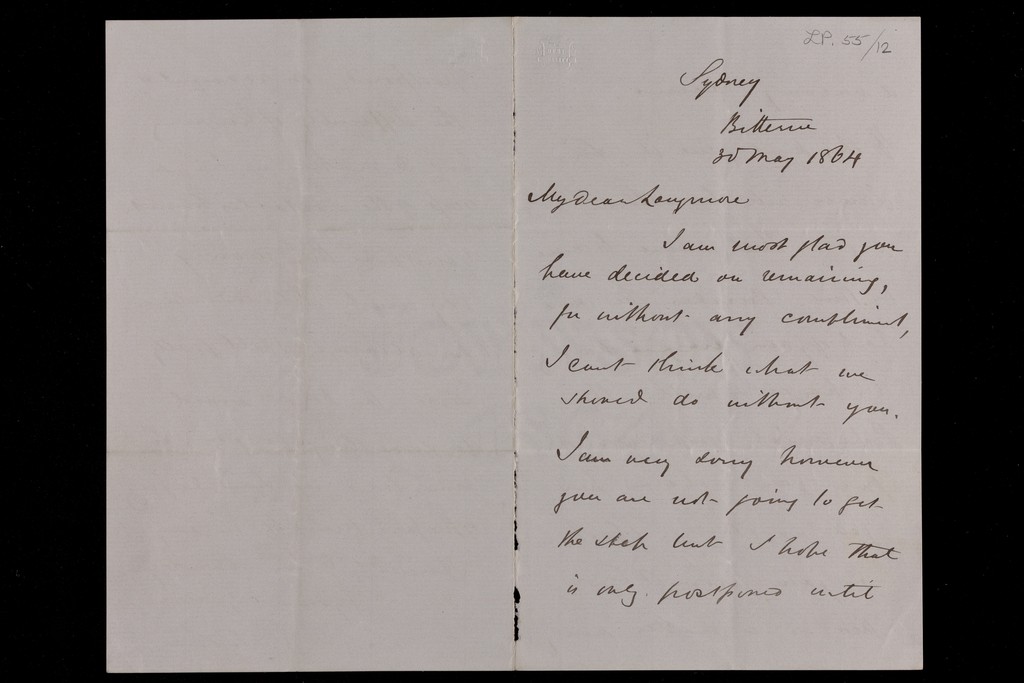 LP. 55/12
Sydney
Bitterne
30 May 1864
My dear Longmore
I am most glad you
have decided on remaining,
for without any compliment,
I cant think what we
should do without you.
I am very sorry however
you are not going to get
the step but I hope that
is only postponed until